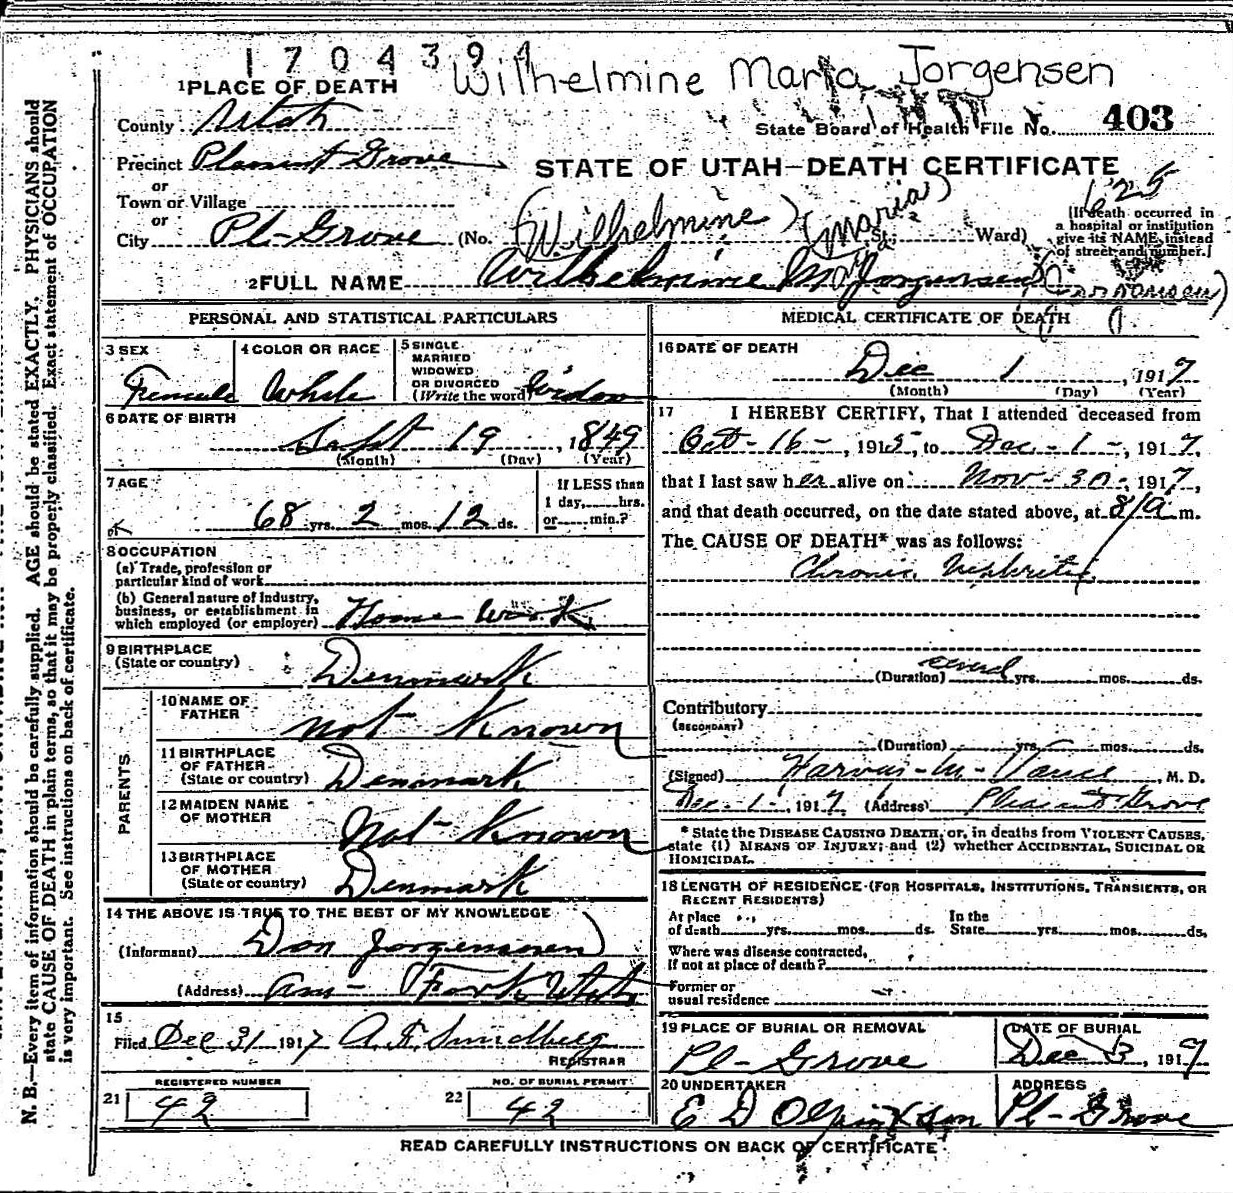 1704394
Wilhelmine Maria Jorgensen
1 PLACE OF DEATH
County Utah
State Board of Health File No. 403
Precinct Pleasant Grove
STATE OF UTAH—DEATH CERTIFICATE
or
Town or Village
or
625
City Pl-Grove (No. St. Ward)
(Wilhelmine) (Maria)
(If death occurred in a hospital or institution give its NAME, instead of street and number.)
2 FULL NAME Wilhelmine M Jorgensen
PERSONAL AND STATISTICAL PARTICULARS
3 SEX Female
4 COLOR OR RACE White
5 SINGLE MARRIED WIDOWED OR DIVORCED (Write the word) Widow
6 DATE OF BIRTH
Sept 19, 1849
(Month) (Day) (Year)
7 AGE
68 yrs. 2 mos. 12 ds.
If LESS than 1 day, hrs. or min.?
8 OCCUPATION
(a) Trade, profession or particular kind of work
(b) General nature of Industry, business, or establishment in which employed (or employer) Home Work
9 BIRTHPLACE
(State or country) Denmark
PARENTS
10 NAME OF FATHER not Known
11 BIRTHPLACE OF FATHER (State or country) Denmark
12 MAIDEN NAME OF MOTHER Not Known
13 BIRTHPLACE OF MOTHER (State or country) Denmark
14 THE ABOVE IS TRUE TO THE BEST OF MY KNOWLEDGE
(Informant) Dan Jorgensen
(Address) Am- Fork, Utah
15
Filed Dec 31 1917 A. F. Sundberg
REGISTRAR
REGISTERED NUMBER
21 42
NO. OF BURIAL PERMIT
22 42
MEDICAL CERTIFICATE OF DEATH
16 DATE OF DEATH
Dec 1, 1917
(Month) (Day) (Year)
17 I HEREBY CERTIFY, That I attended deceased from
Oct-16-, 1915, to Dec-1-, 1917,
that I last saw her alive on Nov-30-, 1917,
and that death occurred, on the date stated above, at 8/a m.
The CAUSE OF DEATH* was as follows:
Chronic Nephritis
(Duration) several yrs. mos. ds.
Contributory
(SECONDARY)
(Duration) yrs. mos. ds.
(Signed) M-Vance, M. D.
Dec-1-1917 (Address) Pleasant Grove
* State the DISEASE CAUSING DEATH, or, in deaths from VIOLENT CAUSES,
state (1) MEANS OF INJURY; and (2) whether ACCIDENTAL, SUICIDAL OR
HOMICIDAL.
18 LENGTH OF RESIDENCE (FOR HOSPITALS, INSTITUTIONS, TRANSIENTS, OR
RECENT RESIDENTS)
At place of death yrs. mos. ds. In the State yrs. mos. ds.
Where was disease contracted,
If not at place of death?
Former or
usual residence
19 PLACE OF BURIAL OR REMOVAL
Pl-Grove
DATE OF BURIAL
Dec 3, 1917
20 UNDERTAKER
E D Olpin & Son
ADDRESS
Pl-Grove
READ CAREFULLY INSTRUCTIONS ON BACK OF CERTIFICATE
N. B.—Every item of information should be carefully supplied. AGE should be stated EXACTLY. PHYSICIANS should
state CAUSE OF DEATH in plain terms, so that it may be properly classified. Exact statement of OCCUPATION
is very important. See instructions on back of certificate.